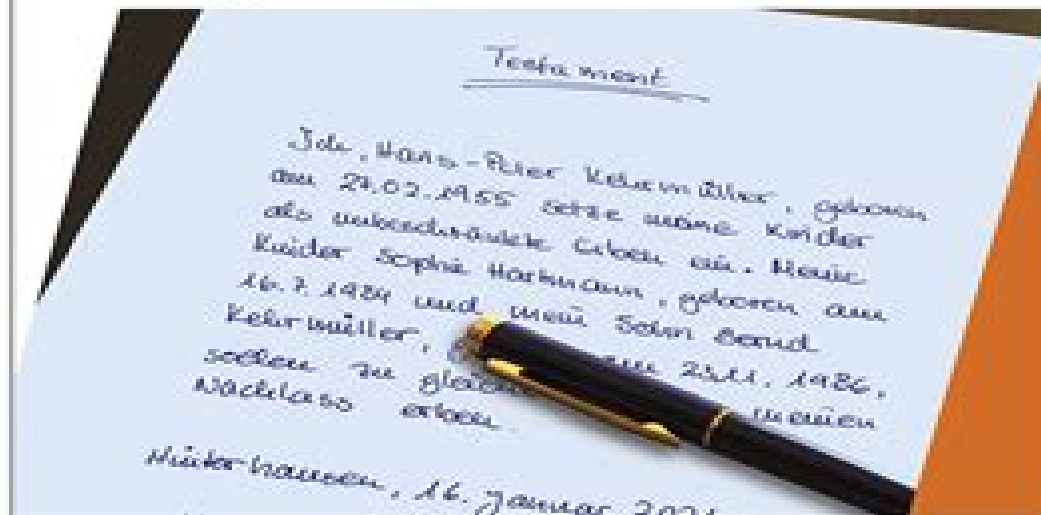 Testament
Ich, Hans-Peter Kehrmüller, geboren
am 27.02.1955 setze meine Kinder
als unbeschränkte Erben ein. Meine
Kinder Sophie Hartmann, geboren am
16.7.1984 und mein Sohn Bernd
Kehrmüller, am 23.11.1986,
sollen zu meinen
Nachlass erben.
16. Januar